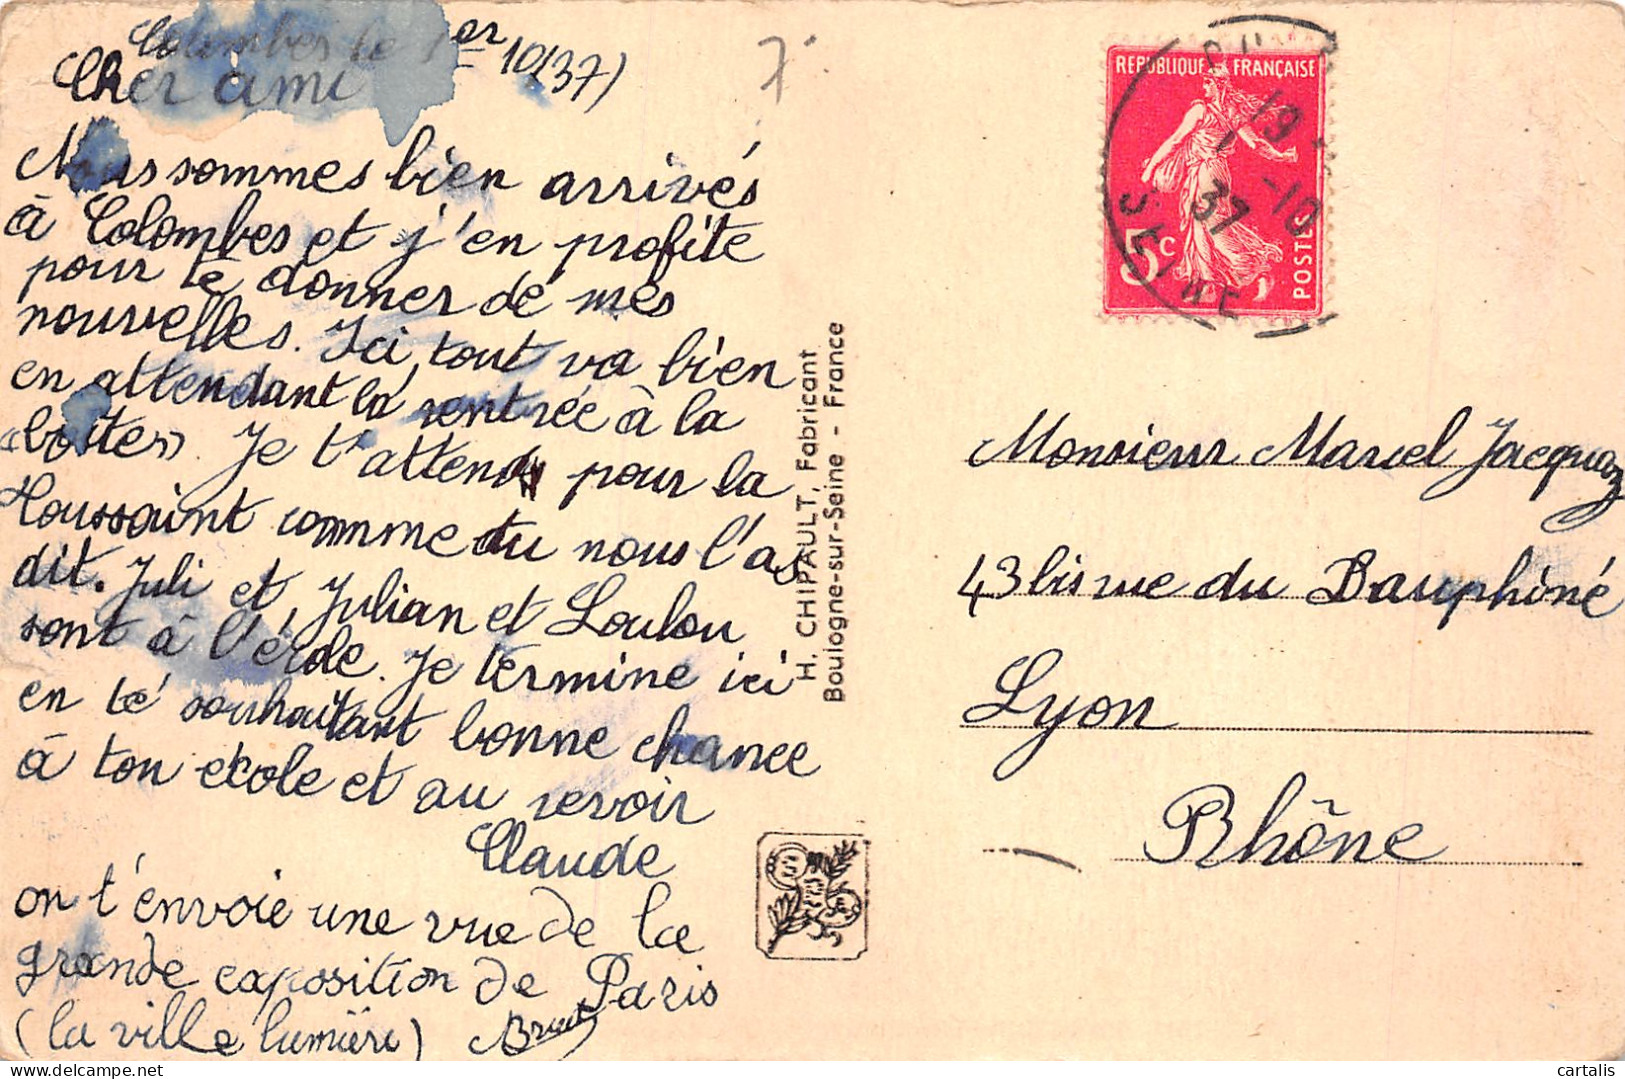 Colombes le 1er 10(37)
Cher ami
Nous sommes bien arrivés
à Colombes et j'en profite
pour te donner de mes
nouvelles. Ici tout va bien
en attendant la rentrée à la
«boîtes». Je t'attend pour la
Toussaint comme tu nous l'as
dit. Juli et Julian et Loulou
sont à l'érole. Je termine ici
en te souhaitant bonne chance
à ton école et au revoir
Claude
on t'envoie une vue de la
grande exposition de Paris
(la ville lumière)
7.
H. CHIPAULT, Fabricant
Boulogne-sur-Seine - France
REPUBLIQUE FRANÇAISE
5c
POSTES
19
1 -10
37
SEINE
Monsieur Marcel Jacquoz
43 bis rue du Dauphiné
Lyon
Rhône
cartalis